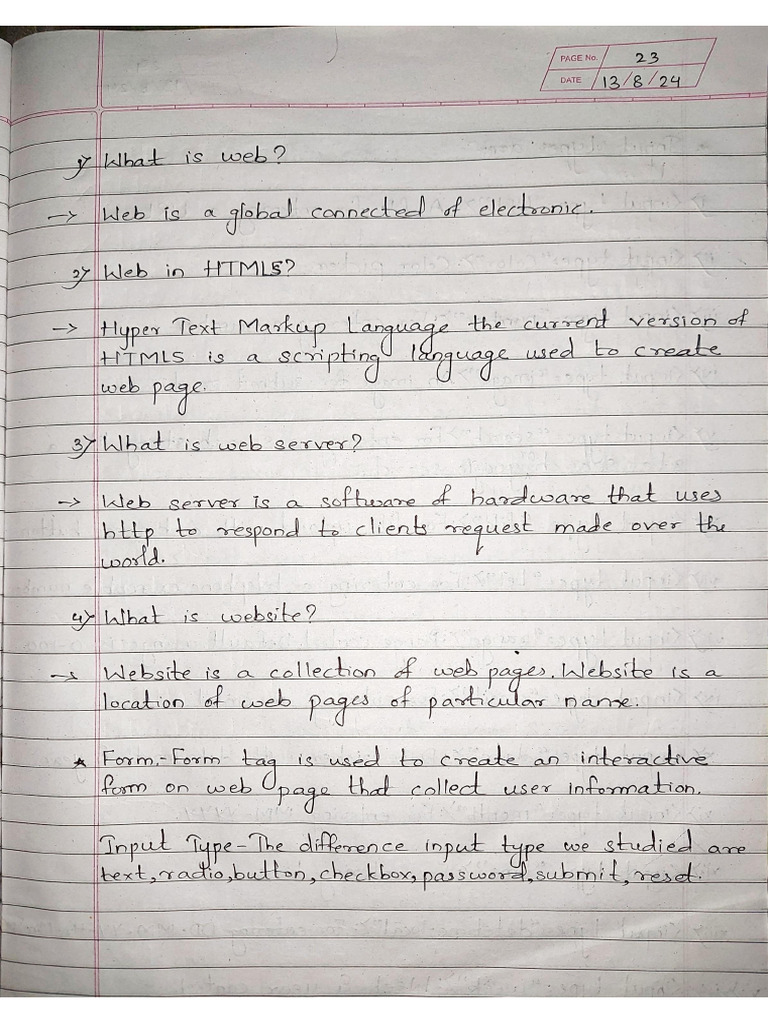 PAGE No. 23
DATE 13/8/24
1) What is web?
→ Web is a global connected of electronic.
2) Web in HTML5?
→ Hyper Text Markup Language the current version of
HTML5 is a scripting language used to create
web page.
3) What is web server?
→ Web server is a software of hardware that uses
http to respond to clients request made over the
world.
4) What is website?
→ Website is a collection of web pages. Website is a
location of web pages of particular name.
* Form:- Form tag is used to create an interactive
form on web page that collect user information.
Input Type - The difference input type we studied are
text, radio, button, checkbox, password, submit, reset.